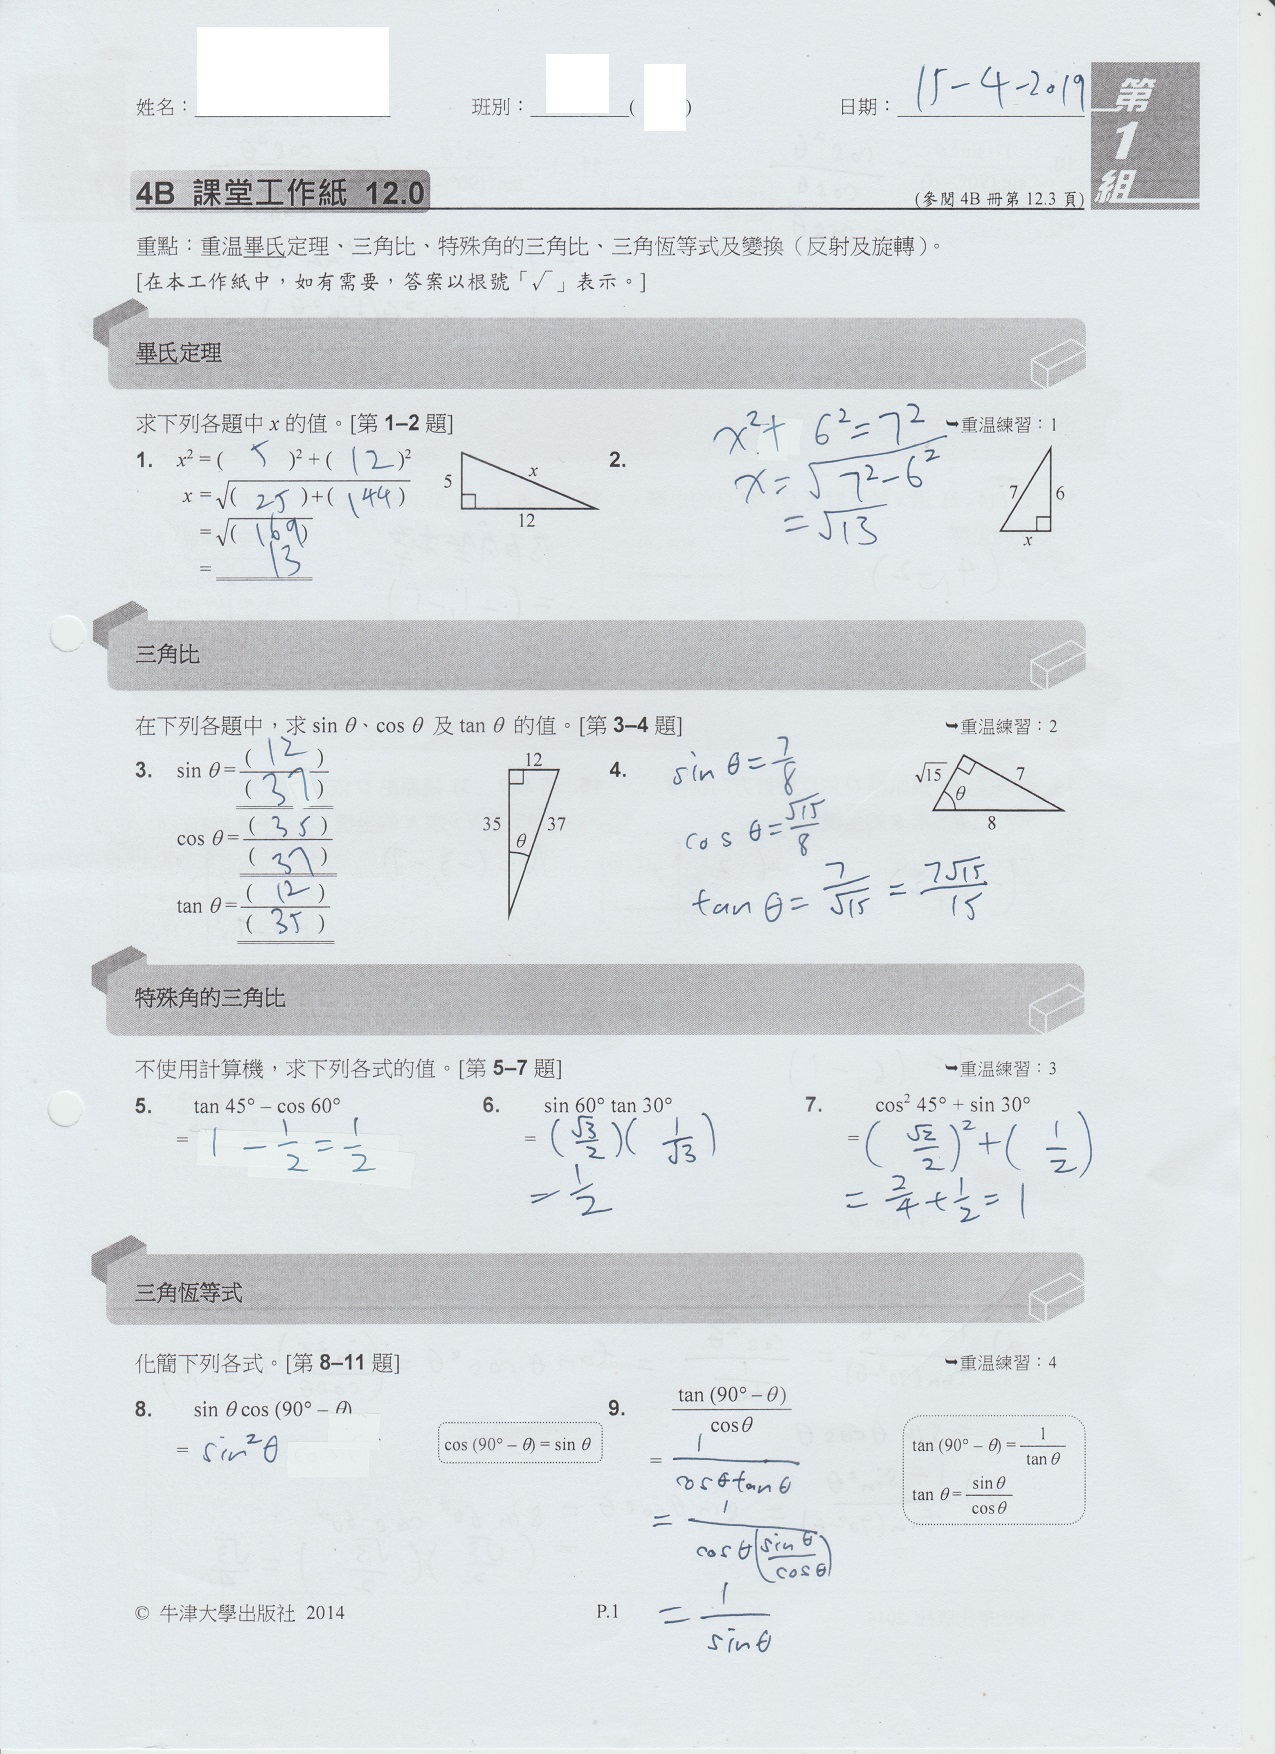 姓名：
班別： ( )
日期： 15-4-2019
第1組
4B 課堂工作紙 12.0
(參閱 4B 冊第 12.3 頁)
重點：重温畢氏定理、三角比、特殊角的三角比、三角恆等式及變換（反射及旋轉）。
[在本工作紙中，如有需要，答案以根號「√」表示。]
畢氏定理
求下列各題中 x 的值。[第 1–2 題]
➥重温練習：1
1. x² = ( 5 )² + ( 12 )²
x = √( 25 ) + ( 144 )
= √( 169 )
= 13
5
x
12
2. x² + 6² = 7²
x = √7² − 6²
= √13
7
6
x
三角比
在下列各題中，求 sin θ、cos θ 及 tan θ 的值。[第 3–4 題]
➥重温練習：2
3. sin θ = ( 12 ) / ( 37 )
cos θ = ( 35 ) / ( 37 )
tan θ = ( 12 ) / ( 35 )
12
35
37
θ
4. sin θ = 7/8
cos θ = √15/8
tan θ = 7/√15 = 7√15/15
√15
7
θ
8
特殊角的三角比
不使用計算機，求下列各式的值。[第 5–7 題]
➥重温練習：3
5. tan 45° – cos 60°
= 1 − 1/2 = 1/2
6. sin 60° tan 30°
= (√3/2)(1/√3)
= 1/2
7. cos² 45° + sin 30°
= (√2/2)² + (1/2)
= 2/4 + 1/2 = 1
三角恆等式
化簡下列各式。[第 8–11 題]
➥重温練習：4
8. sin θ cos (90° – θ)
= sin²θ
cos (90° – θ) = sin θ
9. tan (90° – θ) / cos θ
= 1 / cosθtanθ
= 1 / cosθ(sinθ/cosθ)
= 1 / sinθ
tan (90° – θ) = 1 / tan θ
tan θ = sin θ / cos θ
© 牛津大學出版社 2014
P.1